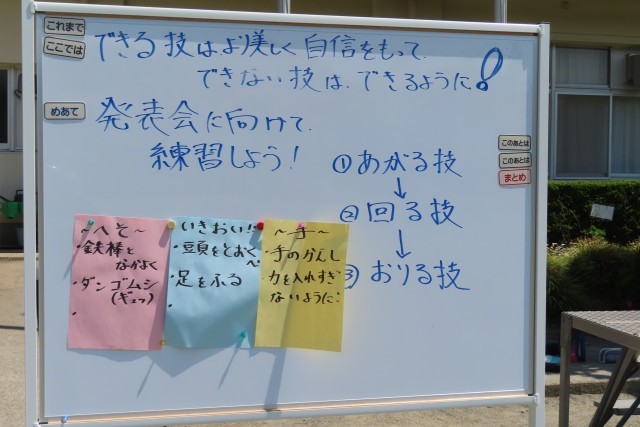 これまで
ここでは
できる技はより美しく自信をもって、
できない技は、できるように!
めあて
発表会に向けて、
練習しよう!
このあとは
このあとは
まとめ
①あがる技
↓
②回る技
↓
③おりる技
~へそ~
・鉄棒と
なかよく
・ダンゴムシ
(ギュッ)
・
いきおい!!
・頭をとおくへ
・足をふる
・
~手~
・手のかえし
・力を入れすぎ
ないように!